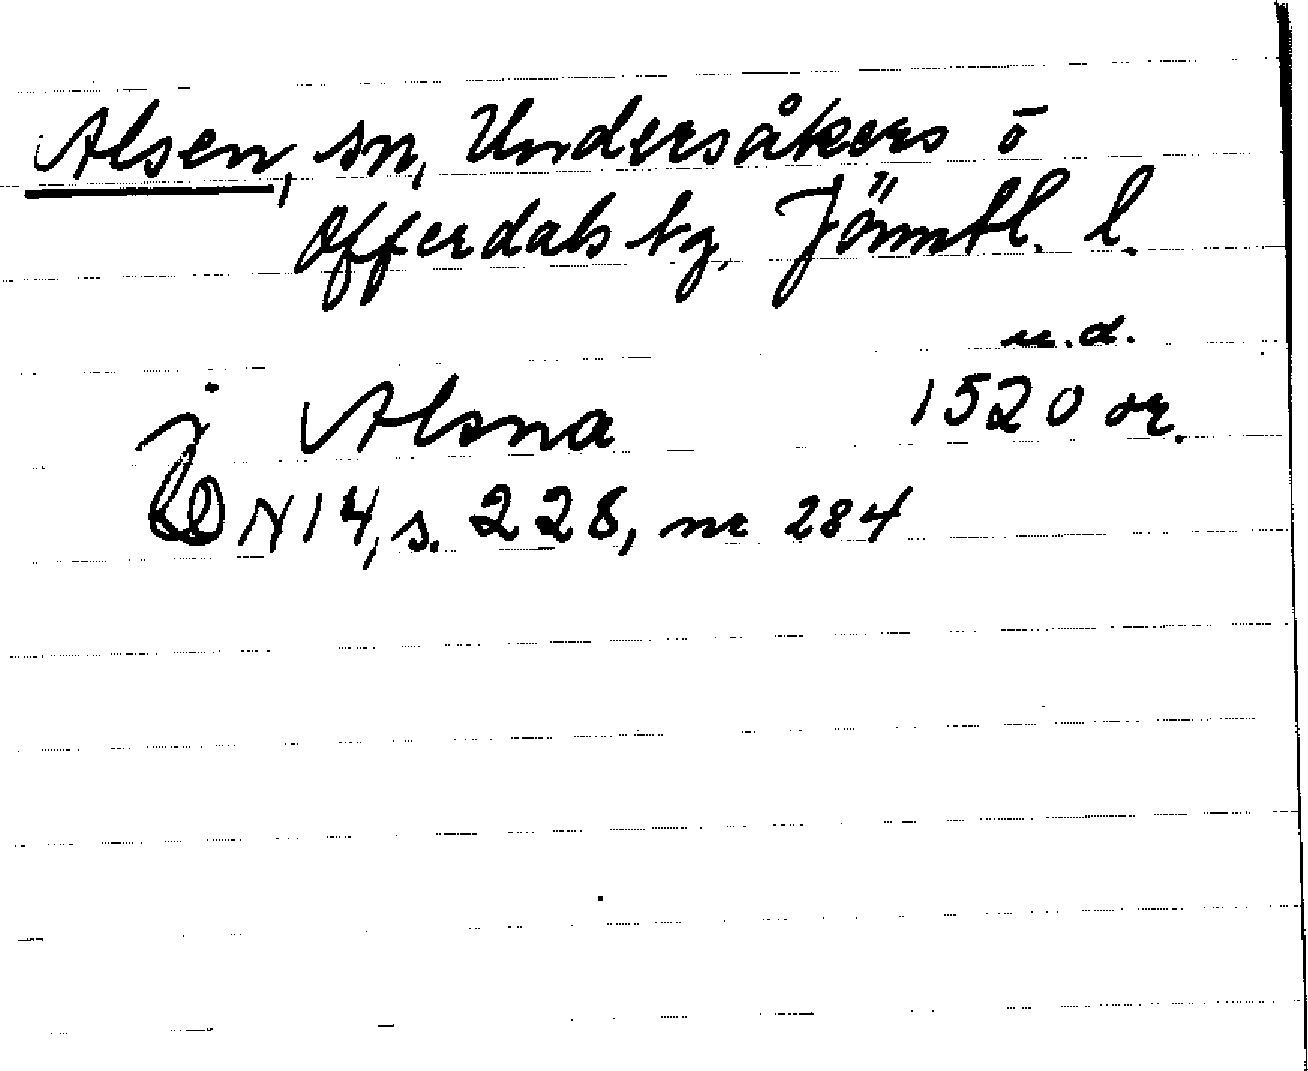 Alsen, sn, Undersåkers o
Offerdals tg, Jämtl. l.
u.d.
j Alsna 1520 or.
DN 14, s. 228, nr 284